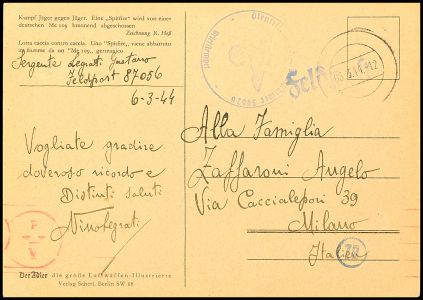 Kampf Jäger gegen Jäger. Eine „Spitfire" wird von einer
deutschen Me 109 brennend abgeschossen
Zeichnung R. Heß
Lotta caccia contro caccia. Uno "Spitfire„ viene abbattuto
in fiamme da un "Me 109„ germanico
Sergente Legrati Gaetano
Feldpost 87056
6-3-44
Vogliate gradire
doveroso ricordo e
Distinti saluti
Nino Legrati
Der Adler die große Luftwaffen-Illustrierte
Verlag Scherl, Berlin SW 68
Feldpost
Alla Famiglia
Zaffaroni Angelo
Via Caccialepori 39
Milano
Italien